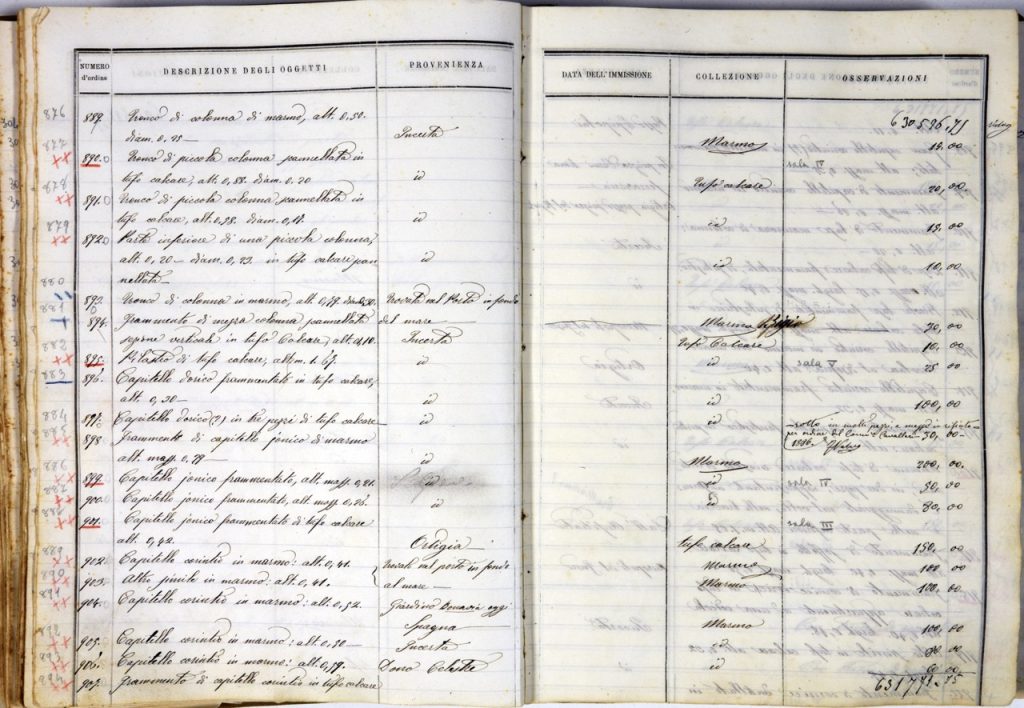 NUMERO d'ordine
DESCRIZIONE DEGLI OGGETTI
PROVENIENZA
DATA DELL'IMMISSIONE
COLLEZIONE
OSSERVAZIONI
630596,75
876
889. Tronco di colonna di marmo, alt. 0,50.
diam. 0, Incerta Marmo 15,00
877
890. Tronco di piccola colonna pannellata in sala IV
tufo calcare, alt. 0,88. diam. 0,20 id Tufo calcare 20,00
878
891. Tronco di piccola colonna pannellata in
tufo calcare, alt. diam. id id 15,00
879
892. Parte inferiore di una piccola colonna,
alt. 0,20 — diam. 0,23. in tufo calcare pan id id 10,00
nellata
880
893. Tronco di colonna in marmo, alt. Trovati nel Porto in fondo
881
894. Frammento di mezza colonna pannellata del mare Marmo Bigio 30,00
882
verticali in tufo calcare, alt. 0,10. Incerta Tufo Calcare 10,00
895. Pilastro di tufo calcare, alt. m. 1. id id sala V 25 00
883
896. Capitello dorico frammentato in tufo calcare,
alt. 0,30 — id id 100,00
884
897. Capitello dorico (?) in tre pezzi di tufo calcare id id rotto in molti pezzi e messo in rifiuto
885
898. Frammento di capitello jonico di marmo per ordine del Cavallari 30,00
1886.
alt. mass. 0,79 — id Marmo 200,00
886
899. Capitello jonico frammentato, alt. mass. 0,21. id id sala IV 50,00
887
900. Capitello jonico frammentato, alt. mass. id id 80,00
888
901. Capitello jonico frammentato di tufo calcare sala III
alt. 0,42. Ortigia tufo calcare 150,00
889
902. Capitello corintio in marmo: alt. 0,41. Trovati nel porto in fondo Marmo 100 00
890
903. Altro simile in marmo: alt. 0,41. al mare — Marmo 100,00
891
904. Capitello corintio in marmo: alt. 0,52. Giardino Bonavia oggi
Spagna Marmo 100,00
892
905. Capitello corintio in marmo: alt. 0,30 — Incerta id 80 00
906. Capitello corintio in marmo: alt. 0,59. Dono id 60 00
907. Frammento di capitello corintio in tufo calcare
631771.75